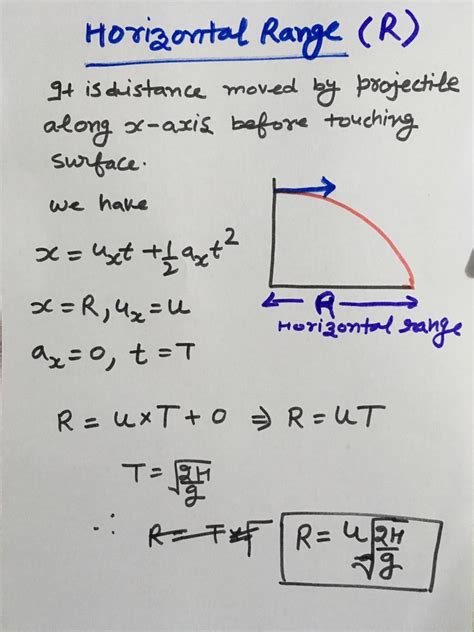 Horizontal Range (R)
It is distance moved by projectile
along x-axis before touching
surface.
we have
x = uₓt + ½ aₓt²
x = R, uₓ = u
aₓ = 0, t = T
R
Horizontal range
R = u×T + 0 ⇒ R = uT
T = √(2H/g)
∴ R = u√(2H/g)